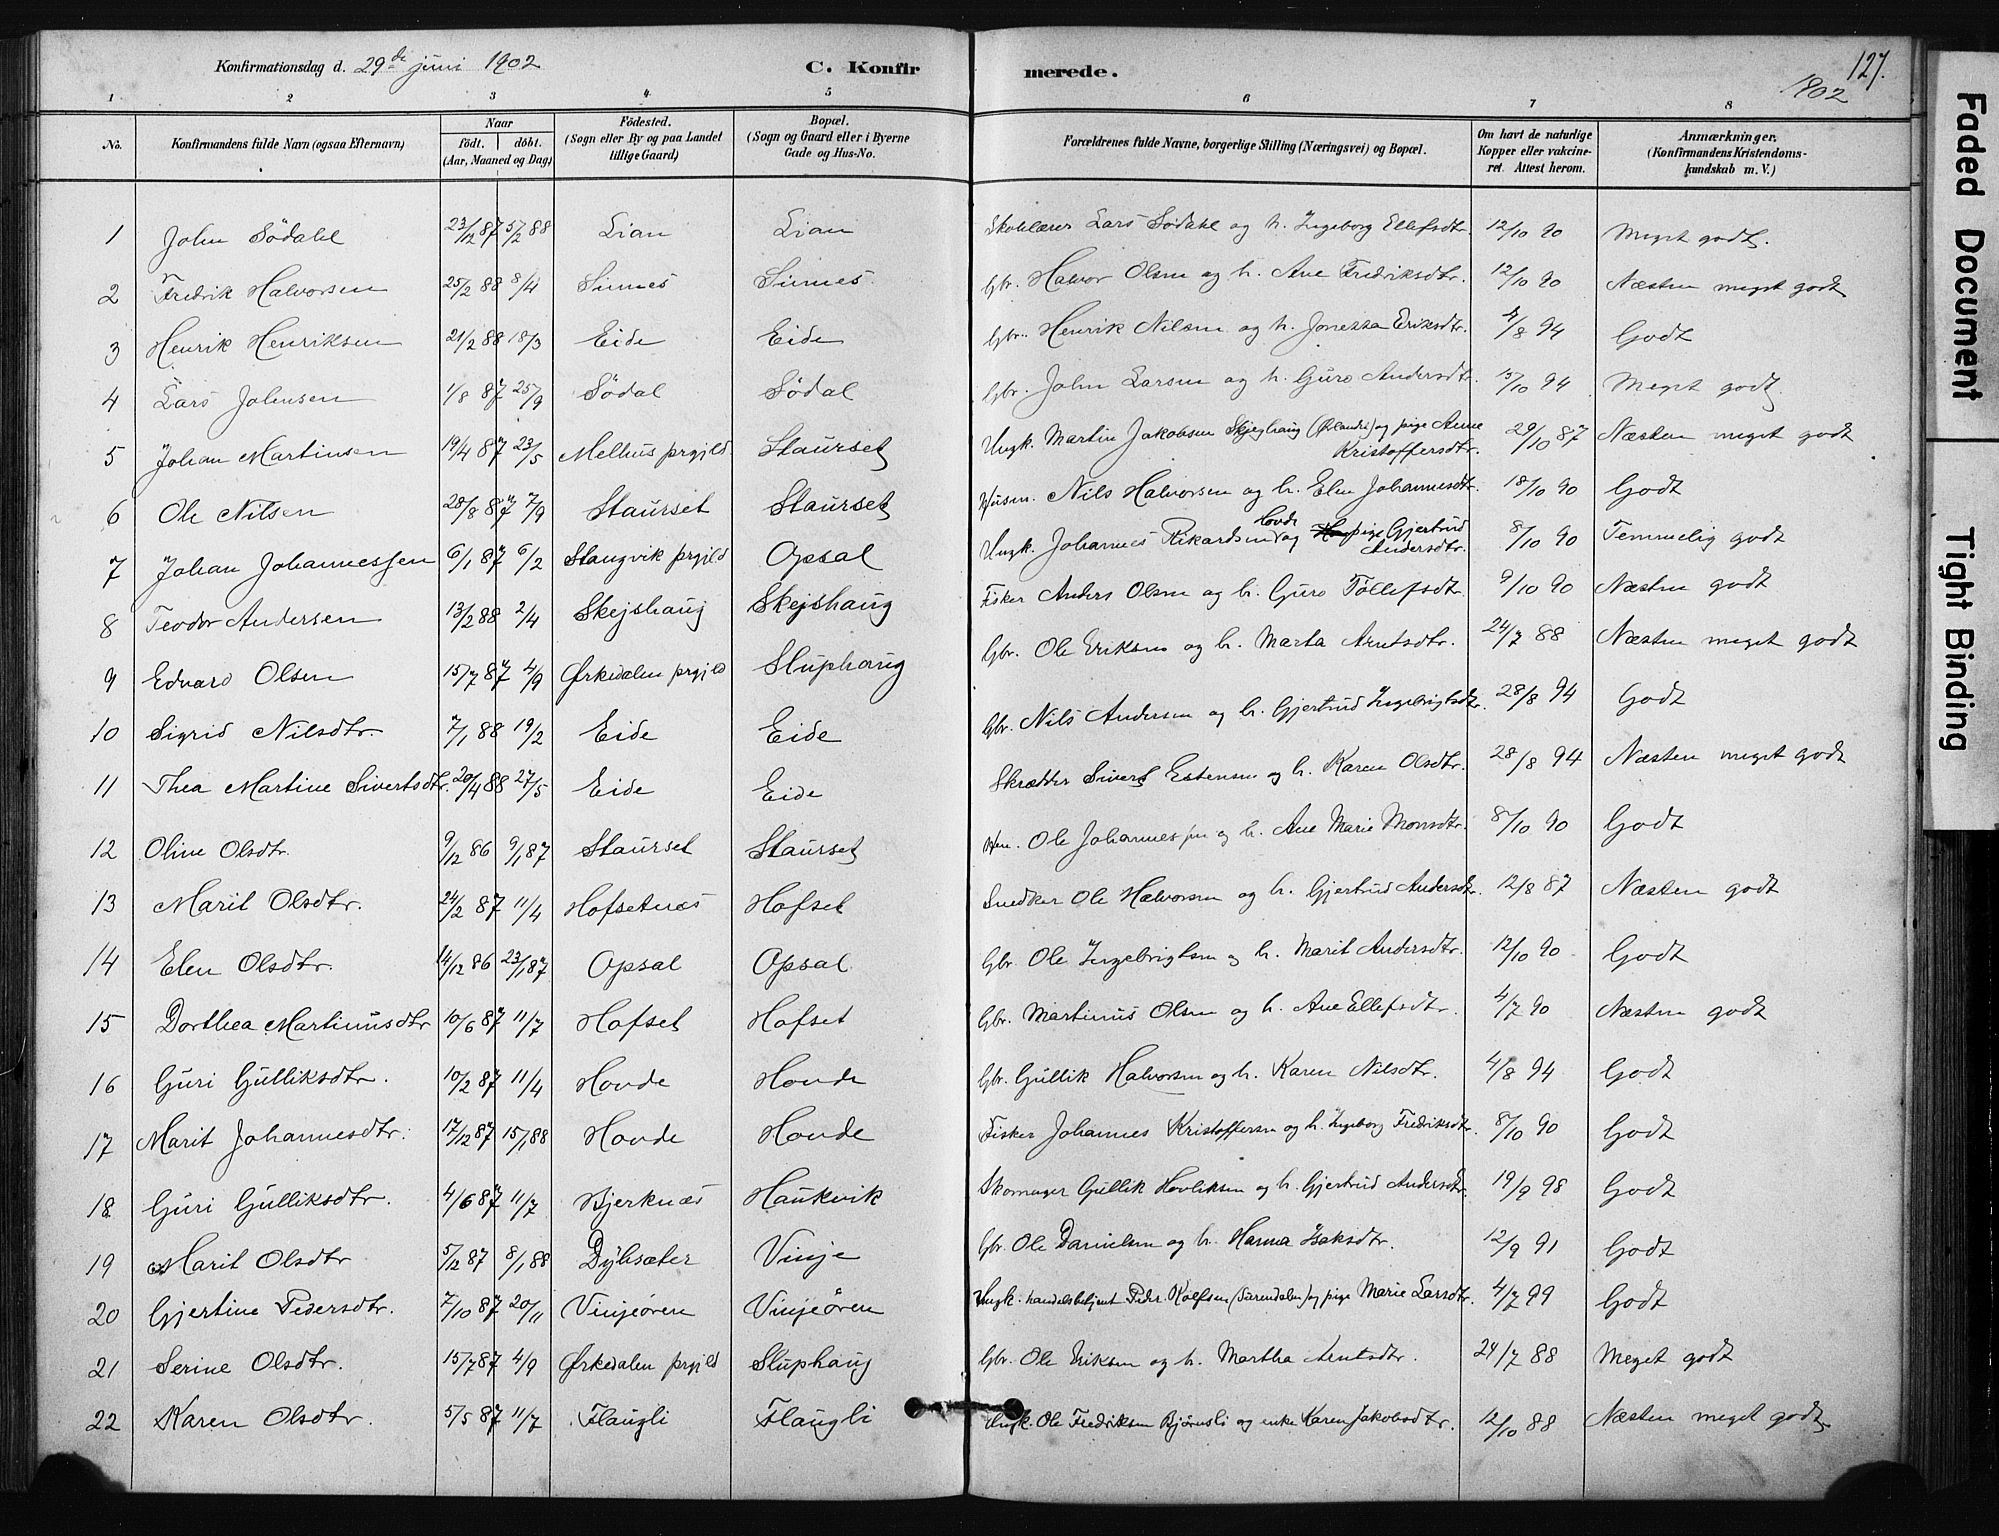 Konfirmationsdag d. 29de juni 1902 C. Konfirmerede. 127.
1902
1 2 3 4 5 6 7 8
No. Konfirmandens fulde Navn (ogsaa Efternavn) Naar født. døbt. (Aar, Maaned og Dag) Fødested. (Sogn eller By og paa Landet tillige Gaard) Bopæl. (Sogn og Gaard eller i Byerne Gade og Hus-No. Forældrenes fulde Navne, borgerlige Stilling (Næringsvei) og Bopæl. Om havt de naturlige Kopper eller vakcineret. Attest herom. Anmærkninger. (Konfirmandens Kristendomskundskab m. V.)
1 John Södahl 23/12 87 5/2 88 Lian Lian Skolelærer Lars Södahl og h. Ingeborg Ellefsdtr. 12/10 90 Meget godt.
2 Fredrik Halvorsen 25/2 88 8/4 Sinnes Sinnes Gbr. Halvor Olsen og h. Ane Fredriksdtr. 12/10 90 Næsten meget godt
3 Henrik Henriksen 21/2 88 18/3 Eide Eide Gbr. Henrik Nilsen og h. Jonetta Eriksdtr. 4/8 94 Godt
4 Lars Johnsen 1/8 87 25/9 Södal Södal Gbr. John Larsen og h. Guro Andersdtr. 15/10 94 Meget godt.
5 Johan Martinsen 19/4 87 23/5 Melhus prgjld. Staurset Ungk. Martin Jakobsen Skjeghaug (Ørlandt) og pige Anne Kristoffersdtr. 29/10 87 Næsten meget godt
6 Ole Nilsen 28/8 87 7/9 Staurset Staurset Husm. Nils Halvorsen og h. Elen Johannesdtr. 18/10 90 Godt
7 Johan Johannessen 6/1 87 6/2 Stangvik prgjld Opsal Ungk. Johannes Rikardsen Hovde og pige Gjertrud Andersdtr. 8/10 90 Temmelig godt
8 Teodor Andersen 13/2 88 2/4 Skejshaug Skejshaug Fisker Anders Olsen og h. Guro Tollefsdtr. 9/10 90 Næsten godt
9 Edvard Olsen 15/7 87 4/9 Ørkedalen prgjld Sluphaug Gbr. Ole Eriksen og h. Marta Arntsdtr. 24/7 88 Næsten meget godt
10 Sigrid Nilsdtr. 7/1 88 19/2 Eide Eide Gbr. Nils Andersen og h. Gjertrud Ingebrigtsdtr. 28/8 94 Godt
11 Thea Martine Sivertsdtr. 20/4 88 27/5 Eide Eide Skrædder Sivert Estensen og h. Karen Olsdtr. 28/8 94 Næsten meget godt
12 Oline Olsdtr. 9/12 86 9/1 87 Staurset Staurset Ole Johannessen og h. Ane Marie Monsdtr. 8/10 90 Godt
13 Marit Olsdtr. 24/2 87 11/4 Hofsetnæs Hofset Snedker Ole Halvorsen og h. Gjertrud Andersdtr. 12/8 87 Næsten godt
14 Elen Olsdtr. 14/12 86 23/1 87 Opsal Opsal Gbr. Ole Ingebrigtsen og h. Marit Andersdtr. 12/10 90 Godt
15 Dorthea Martinusdtr 10/6 87 11/7 Hofset Hofset Gbr. Martinus Olsen og h. Ane Ellefsdtr. 4/7 90 Næsten godt
16 Guri Gulliksdtr. 10/2 87 11/4 Hovde Hovde Gbr. Gullik Halvorsen og h. Karen Nilsdtr. 4/8 94 Godt
17 Marit Johannesdtr. 17/12 87 15/1 88 Hovde Hovde Fisker Johannes Kristoffersen og h. Ingeborg Fredriksdtr. 8/10 90 Godt
18 Guri Gulliksdtr. 4/6 87 11/7 Bjerknæs Haukvik Skomager Gullik Hovliksen og h. Gjertrud Andersdtr. 19/9 98 Godt
19 Marit Olsdtr 5/12 87 8/1 88 Dyhsæter Vinje Gbr. Ole Danielsen og h. Hanna Isaksdtr. 12/9 91 Godt
20 Gjertine Pedersdtr. 7/10 87 20/11 Vinjeören Vinjeören Ungk. handelsbetjent Peder Rolfsen (Surendalen) og pige Marie Larsdtr. 4/7 99 Godt
21 Serine Olsdtr. 15/7 87 4/9 Ørkedalen prgjld Sluphaug Gbr. Ole Eriksen og h. Martha Arntsdtr. 24/7 88 Meget godt
22 Karen Olsdtr. 5/5 87 11/7 Flaugli Flaugli Ungk. Ole Fredriksen Bjørnsli og enke Karen Jakobsdtr. 12/10 88 Næsten meget godt
Faded Document
Tight Binding